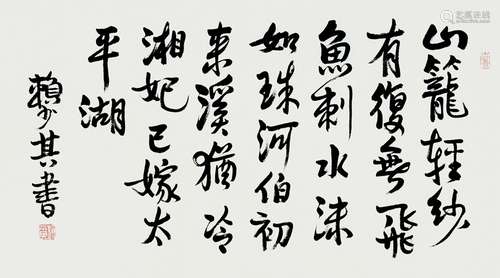 山籠輕紗
有復無飛
魚刺水沫
如珠河伯初
来溪猶冷
湘妃已嫁太
平湖
賴少其書